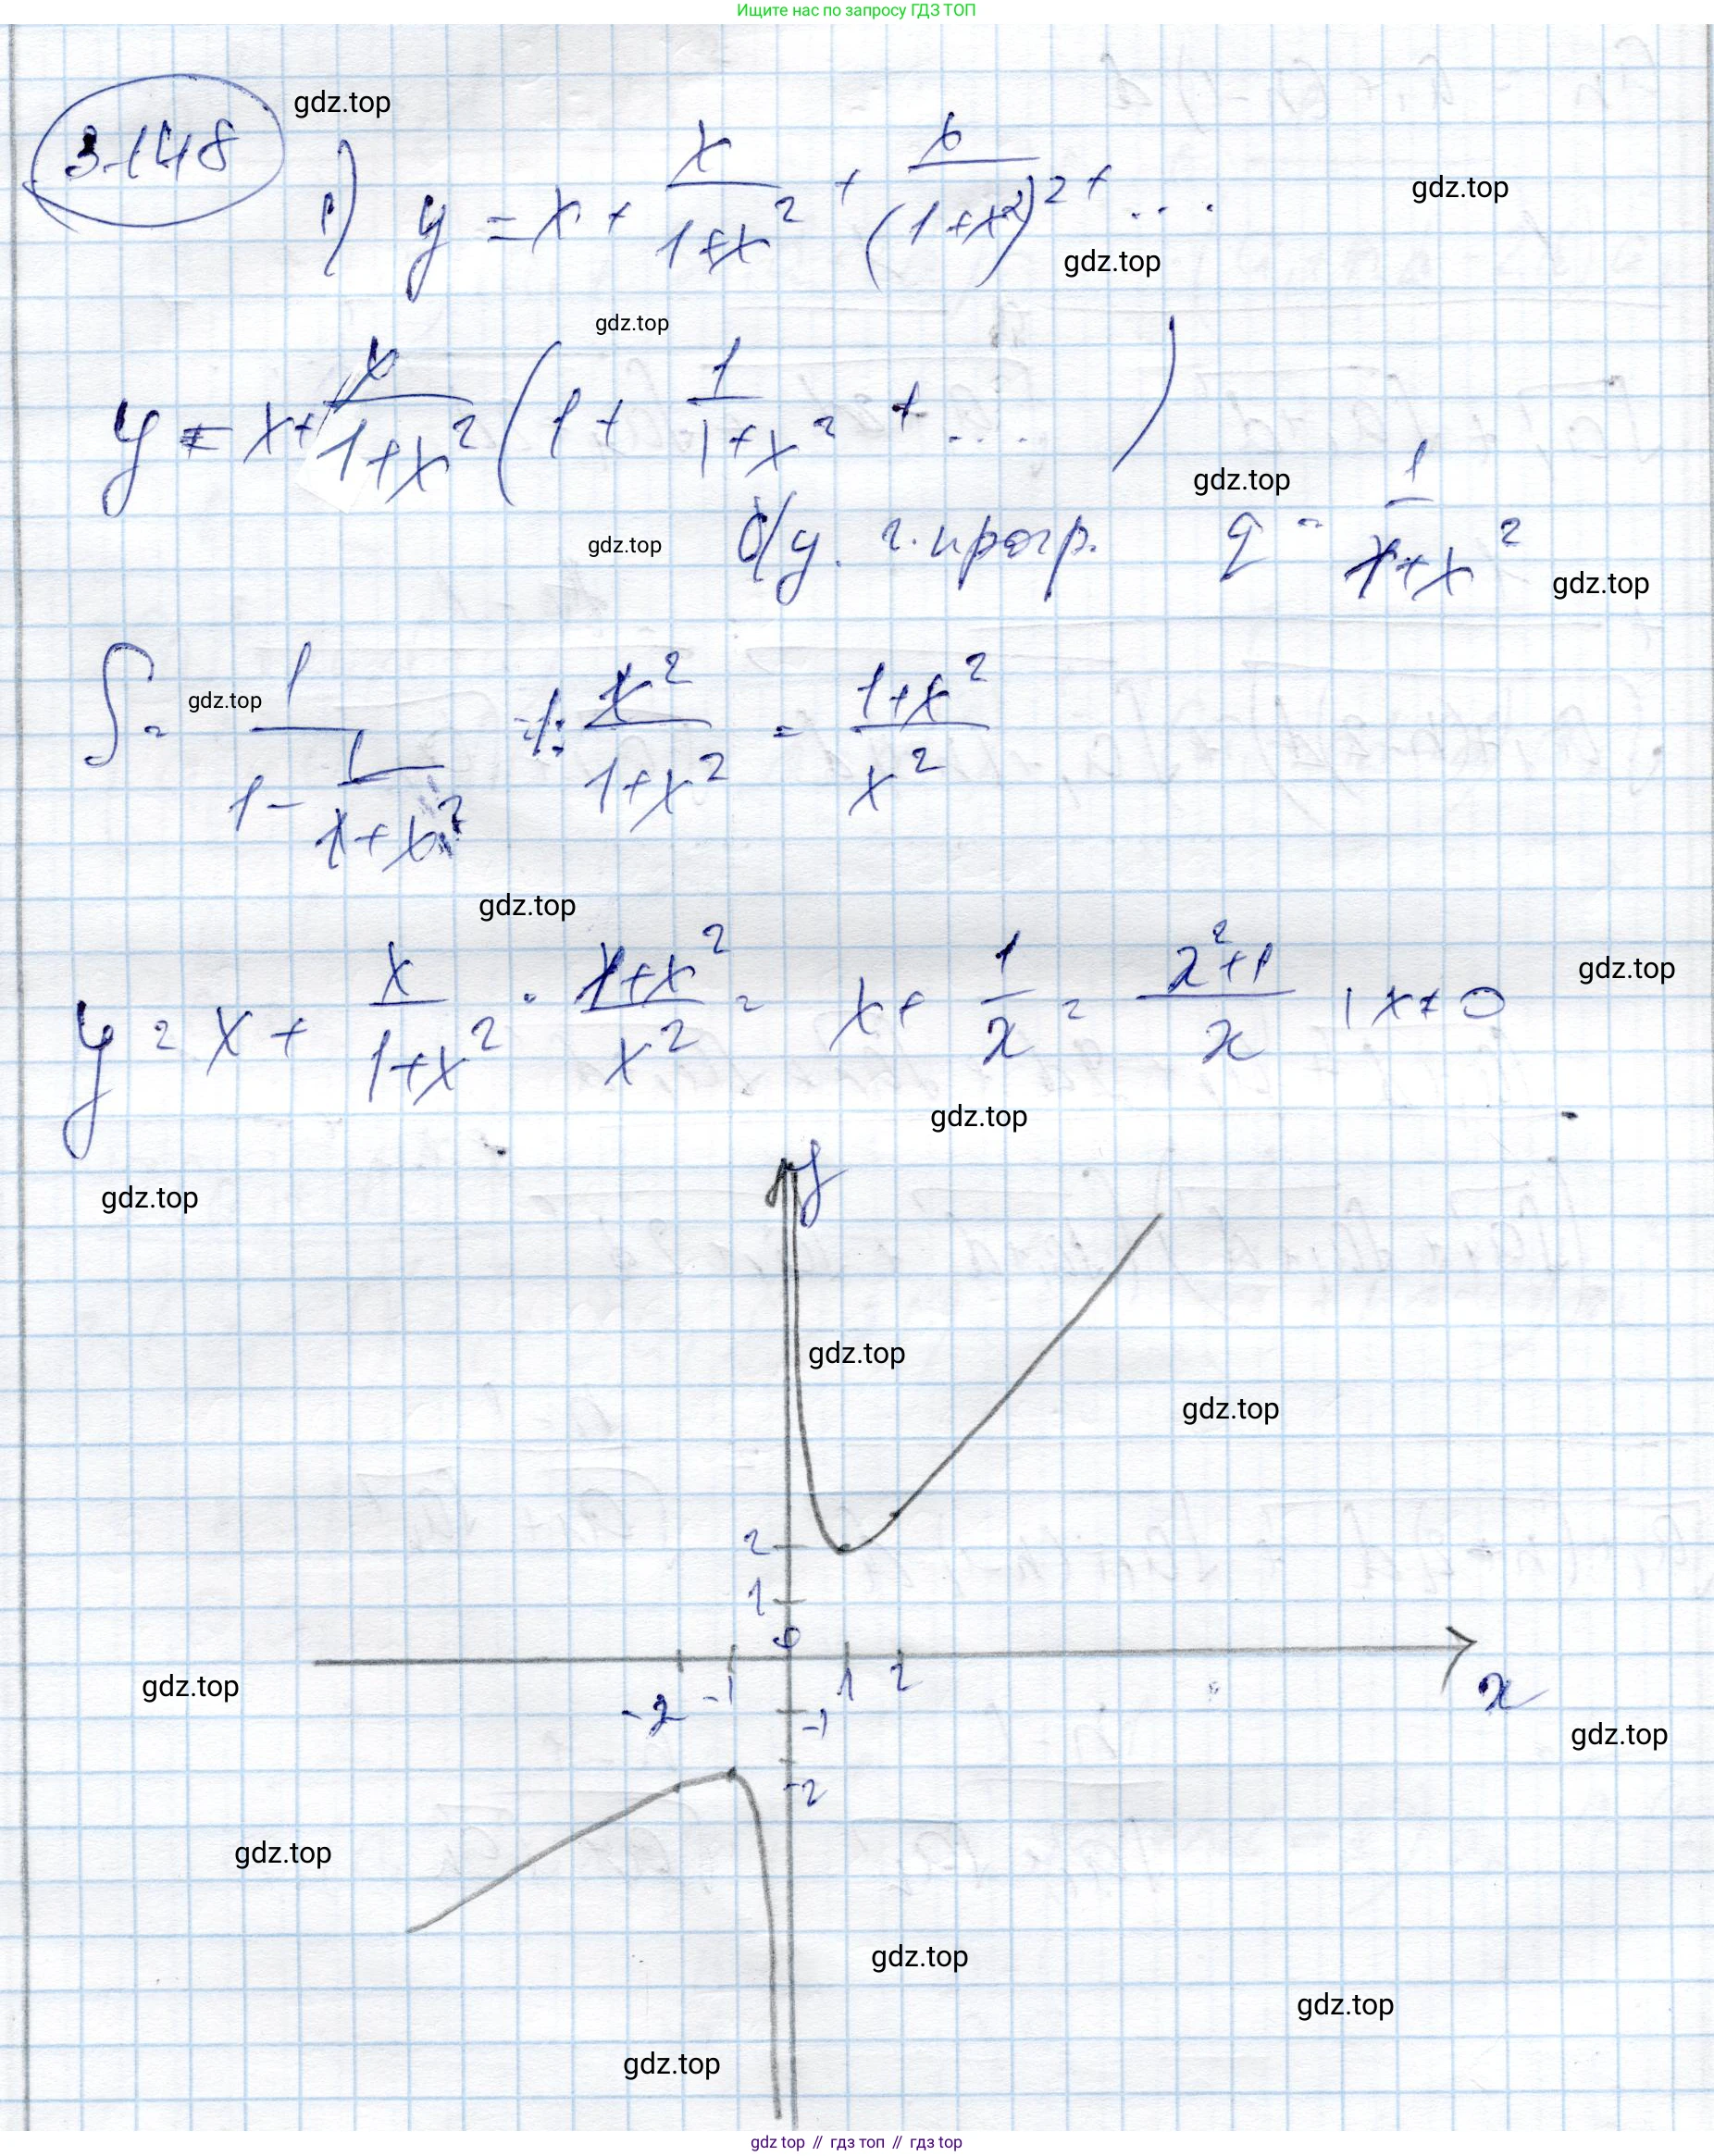 Ищите нас по запросу ГДЗ ТОП
3.148
gdz.top
1) y = x + x/(1+x²) + x/(1+x²)² + ...
gdz.top
gdz.top
gdz.top
y = x + x/(1+x²) (1 + 1/(1+x²) + ...)
gdz.top
б/у. г. прогр. q = 1/(1+x²)
gdz.top
gdz.top
S = 1/(1 - 1/(1+x²)) = 1 : x²/(1+x²) = (1+x²)/x²
gdz.top
gdz.top
y = x + x/(1+x²) · (1+x²)/x² = x + 1/x = (x²+1)/x, x ≠ 0
gdz.top
gdz.top
y
gdz.top
gdz.top
gdz.top
2
1
0
-2 -1 1 2 x
gdz.top
-1
gdz.top
-2
gdz.top
gdz.top
gdz.top
gdz.top
gdz top // гдз топ // gdz.top